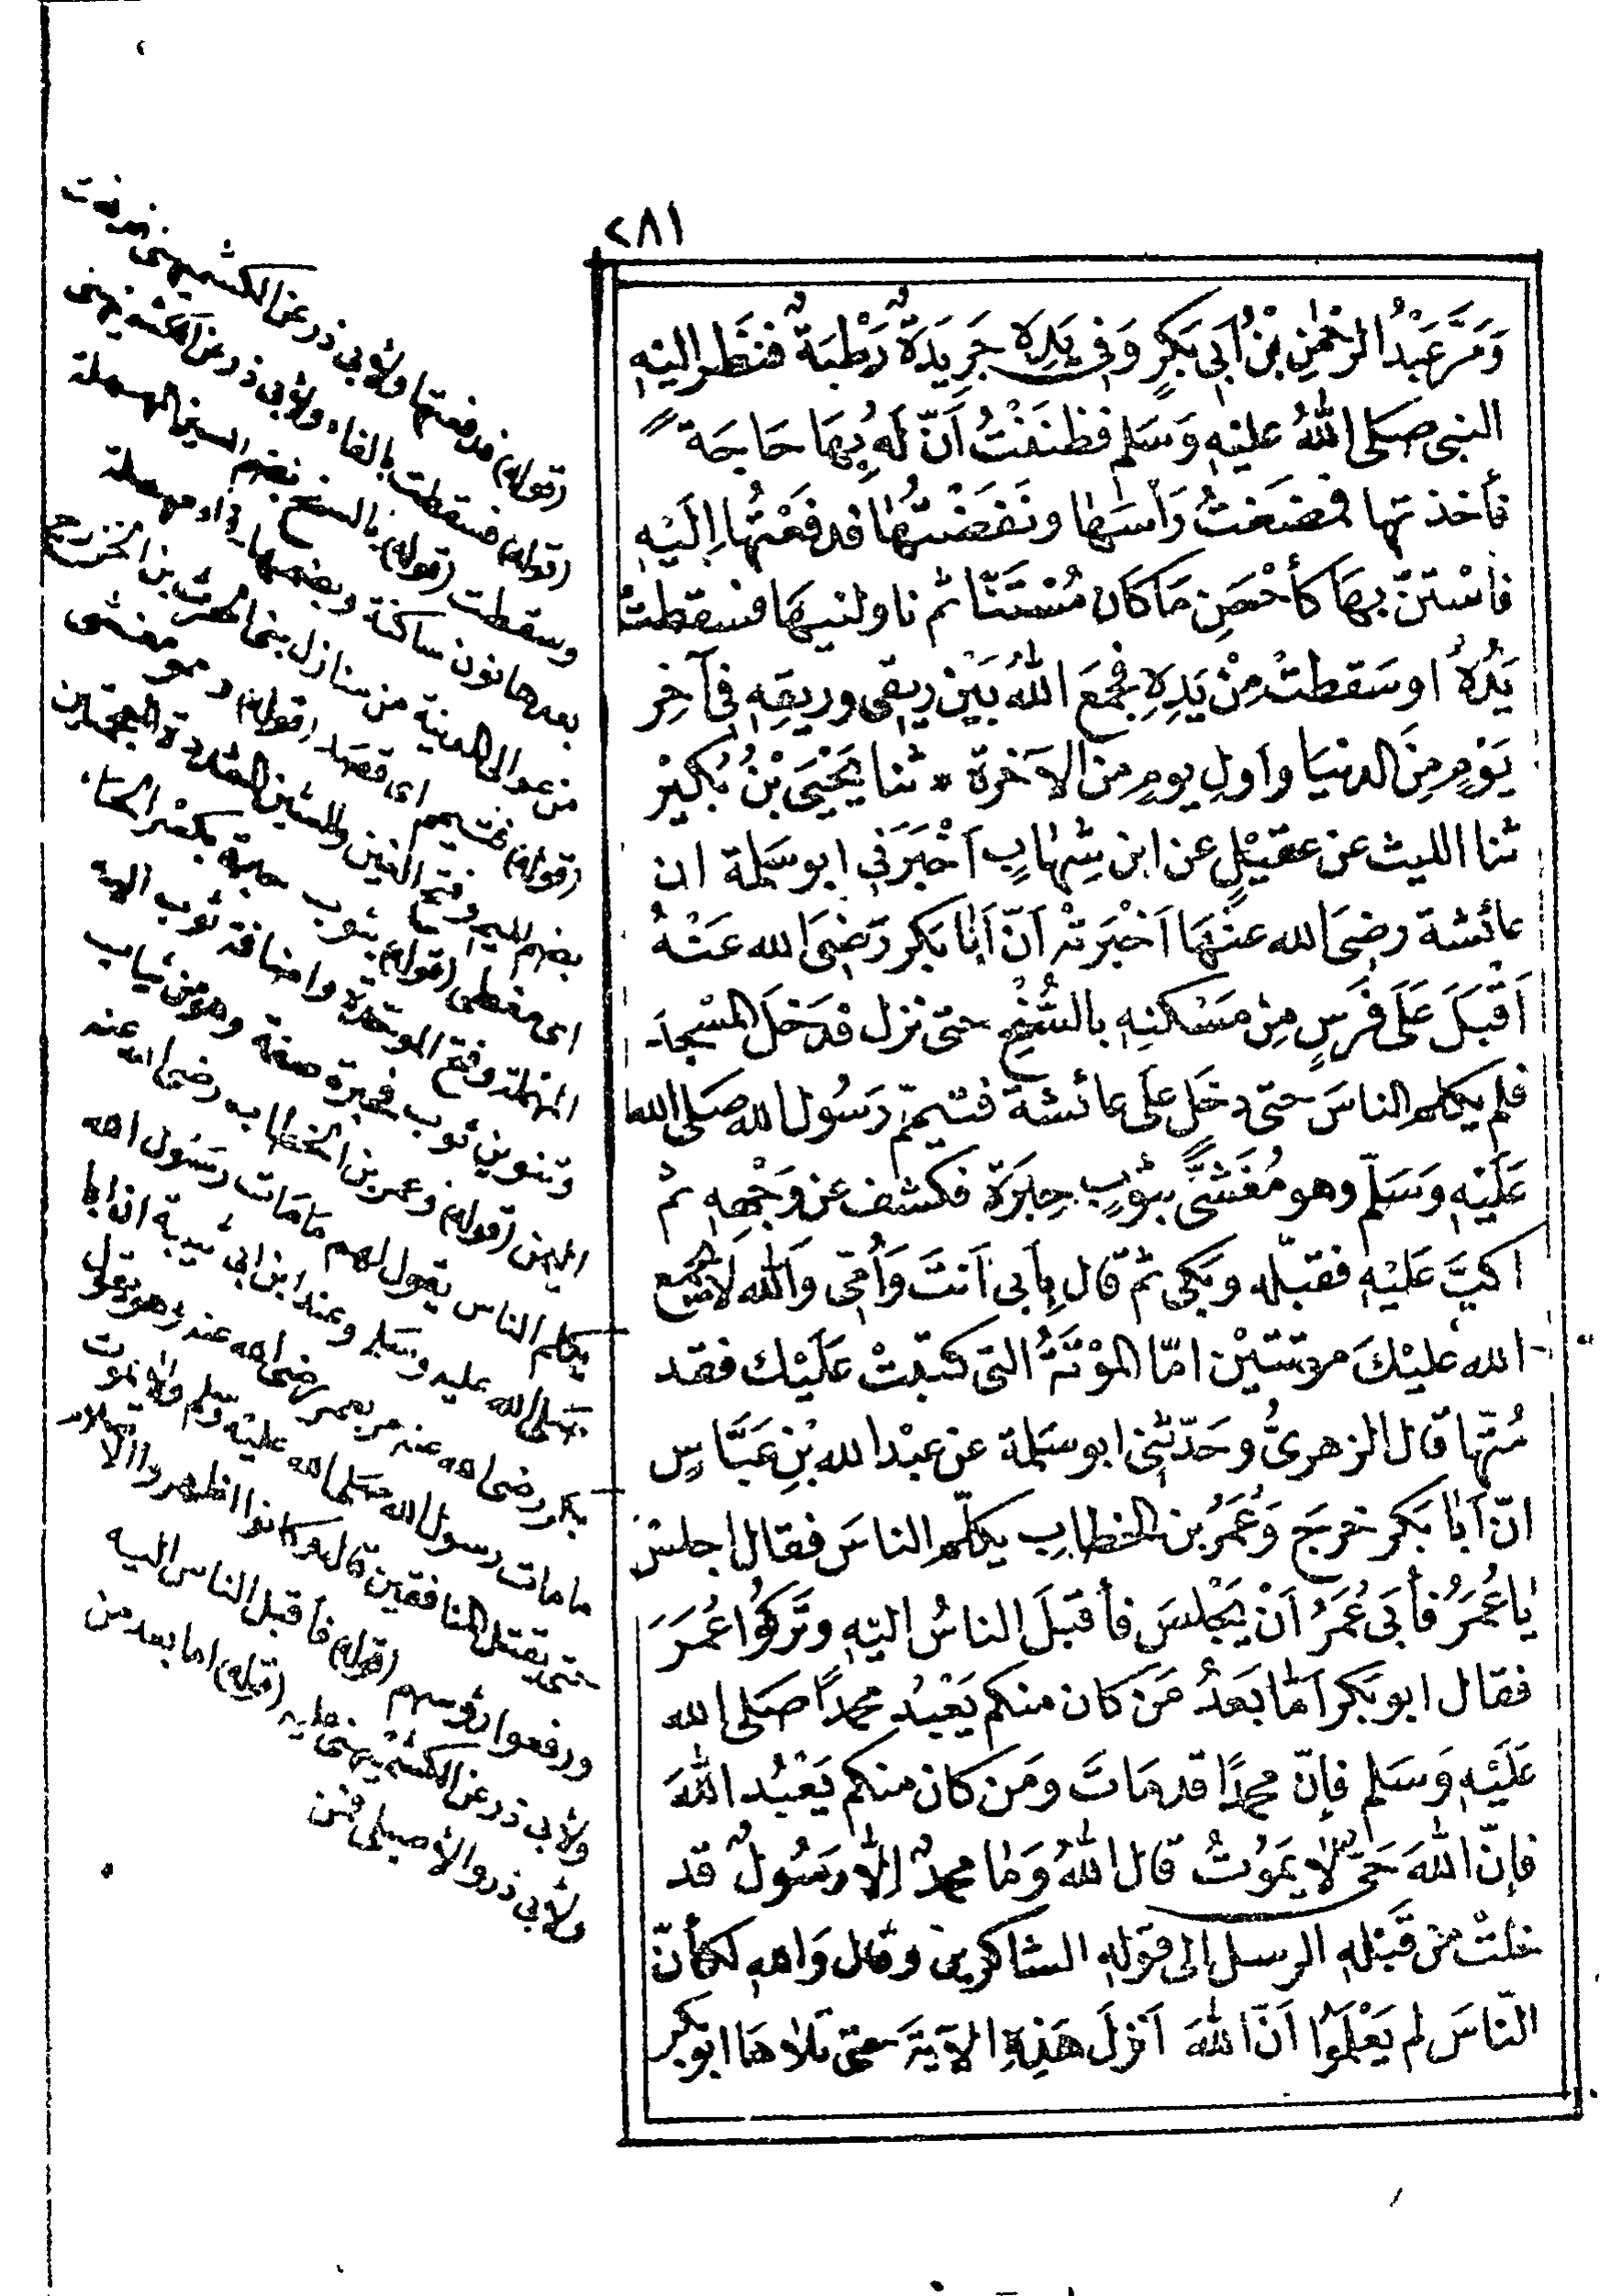 ٢٨١
وَمَرَّ عَبْدُ الرَّحْمٰنِ بْنُ اَبِى بَكرٍ وَفِى يَدِهِ جَرِيَدَةٌ رَطْبَةٌ فنَظَر اليْهِ
النبى صَلى اللّٰهُ عليْهِ وَسَلم فظنَنْتُ اَنّ لَهُ بِهَا حَاجَةً
فأخذتها فمضَغتُ رَأسَهَا ونَفَضْتُهَا فدفعْتُهَا اِلَيْهِ
فاسْتَنّ بهَا كأحْسَنِ مَا كَان مُسْتَنًّا ثم ناولنيهَا فسقطتْ
يَدُهُ اوسَقطتْ مِنْ يَدِهِ فجمَعَ اللّٰهُ بَيْن رِيقى وريقِهِ فى آخِر
يَوْمٍ مِنَ الدنيَا واولِ يومٍ مِن الآخرة * ثنا يَحْيَى بْنُ بُكَيْر
ثنا الليث عن عقيْلٍ عن ابن شِهَابٍ اَخْبَرَنِى ابوسَلمة ان
عائشة رضىَ الله عنْهَا اَخْبَرَتْه اَنّ اَبَا بَكر رَضىَ الله عَنْهُ
اَقْبَلَ عَلَى فَرَسٍ مِنْ مَسْكَنِهِ بالسُّنْحِ حتى نزل فدَخلَ المسْجدَ
فلم يكلم الناسَ حتى دخَل عَلَى عائشة فتيمّم رَسُول الله صَلى الله
عَلَيْهِ وَسَلّم وهو مُغَشًّى بثوْبٍ حِبَرَة فكشف عن وَجْهِهِ ثم
اكبَّ عَلَيْهِ فقبّله وبَكى ثم قال بِأبى اَنتَ وَاُمّى وَاللّٰه لا يجمع
الله عليْكَ مَوتتَيْن امّا المَوْتَةُ التى كتبتْ عَلَيْك فقد
مُتّها قال الزهرىُّ وحَدّثنى ابوسَلمة عن عبْد الله بْنِ عَبَّاسٍ
انّ اَبَا بَكر خرجَ وَعُمَرُ بن الخطابِ يكلّم الناسَ فقال اجلسْ
يَا عُمَرُ فأبَى عُمَرُ اَنْ يَجْلسَ فأقبَلَ الناسُ اليْهِ وتَركُوا عُمَرَ
فقال ابوبَكر اَمَّا بَعدُ مَن كان منكم يَعْبُد محمدًا صَلى الله
عَلَيْهِ وَسَلم فإنّ محمدًا قدمَاتَ ومَن كان منكم يَعْبُد اللّٰهَ
فإنّ اللّٰهَ حَىّ لَا يمَوُتُ قال اللّٰهُ وَمَا محمدٌ اِلّا رَسُولٌ قد
خلتْ من قَبْلِهِ الرسل الى قوَلِه الشاكرين وقال وَاللهِ لكأنّ
النّاسَ لم يَعْلَمُوا اَنّ اللّٰهَ اَنْزلَ هَذِهِ الآيَةَ حتى تَلَاهَا ابوبَكر
(قوله) فدفعتها ولأبى ذر عن الكشميهنى فدفعت
(قوله) فسقطت بالفاء ولأبى ذر عن الكشميهنى
وسقطت (قوله) بالسنح بضم السين المهملة
بعدها نون ساكنة وبضمها فحاء مهملة
من عوالى المدينة من منازل بنى الحرث بن الخزرج
(قوله) فتيمم اى قصد (قوله) وهو مغشى
بضم الميم وفتح الغين والشين المشددة المعجمتين
اى مغطى (قوله) بثوب حبرة بكسر الحاء
المهملة وفتح الموحدة واضافة ثوب اليه
وتنوين ثوب فحبرة صفة وهو من ثياب
اليمن (قوله) وعمر بن الخطاب رضى الله عنه
يكلم الناس يقول لهم مَامَات رسُول الله
صَلى الله عليه وسَلم وعند ابن ابى شيبة ان ابا
بكر رضى الله عنه مر بعمر رضى الله عنه وهو يقول
ما مات رسول الله صَلى الله عليْه وسَلم ولا يموت
حتى يقتل المنافقين قال وكانوا اظهروا الاستبشار
ورفعوا رؤسهم (قوله) فأقبل الناس اليه
ولأبى ذر عن الكشميهنى عليه (قوله) اما بعد من
ولأبى ذر والأصيلى فمن